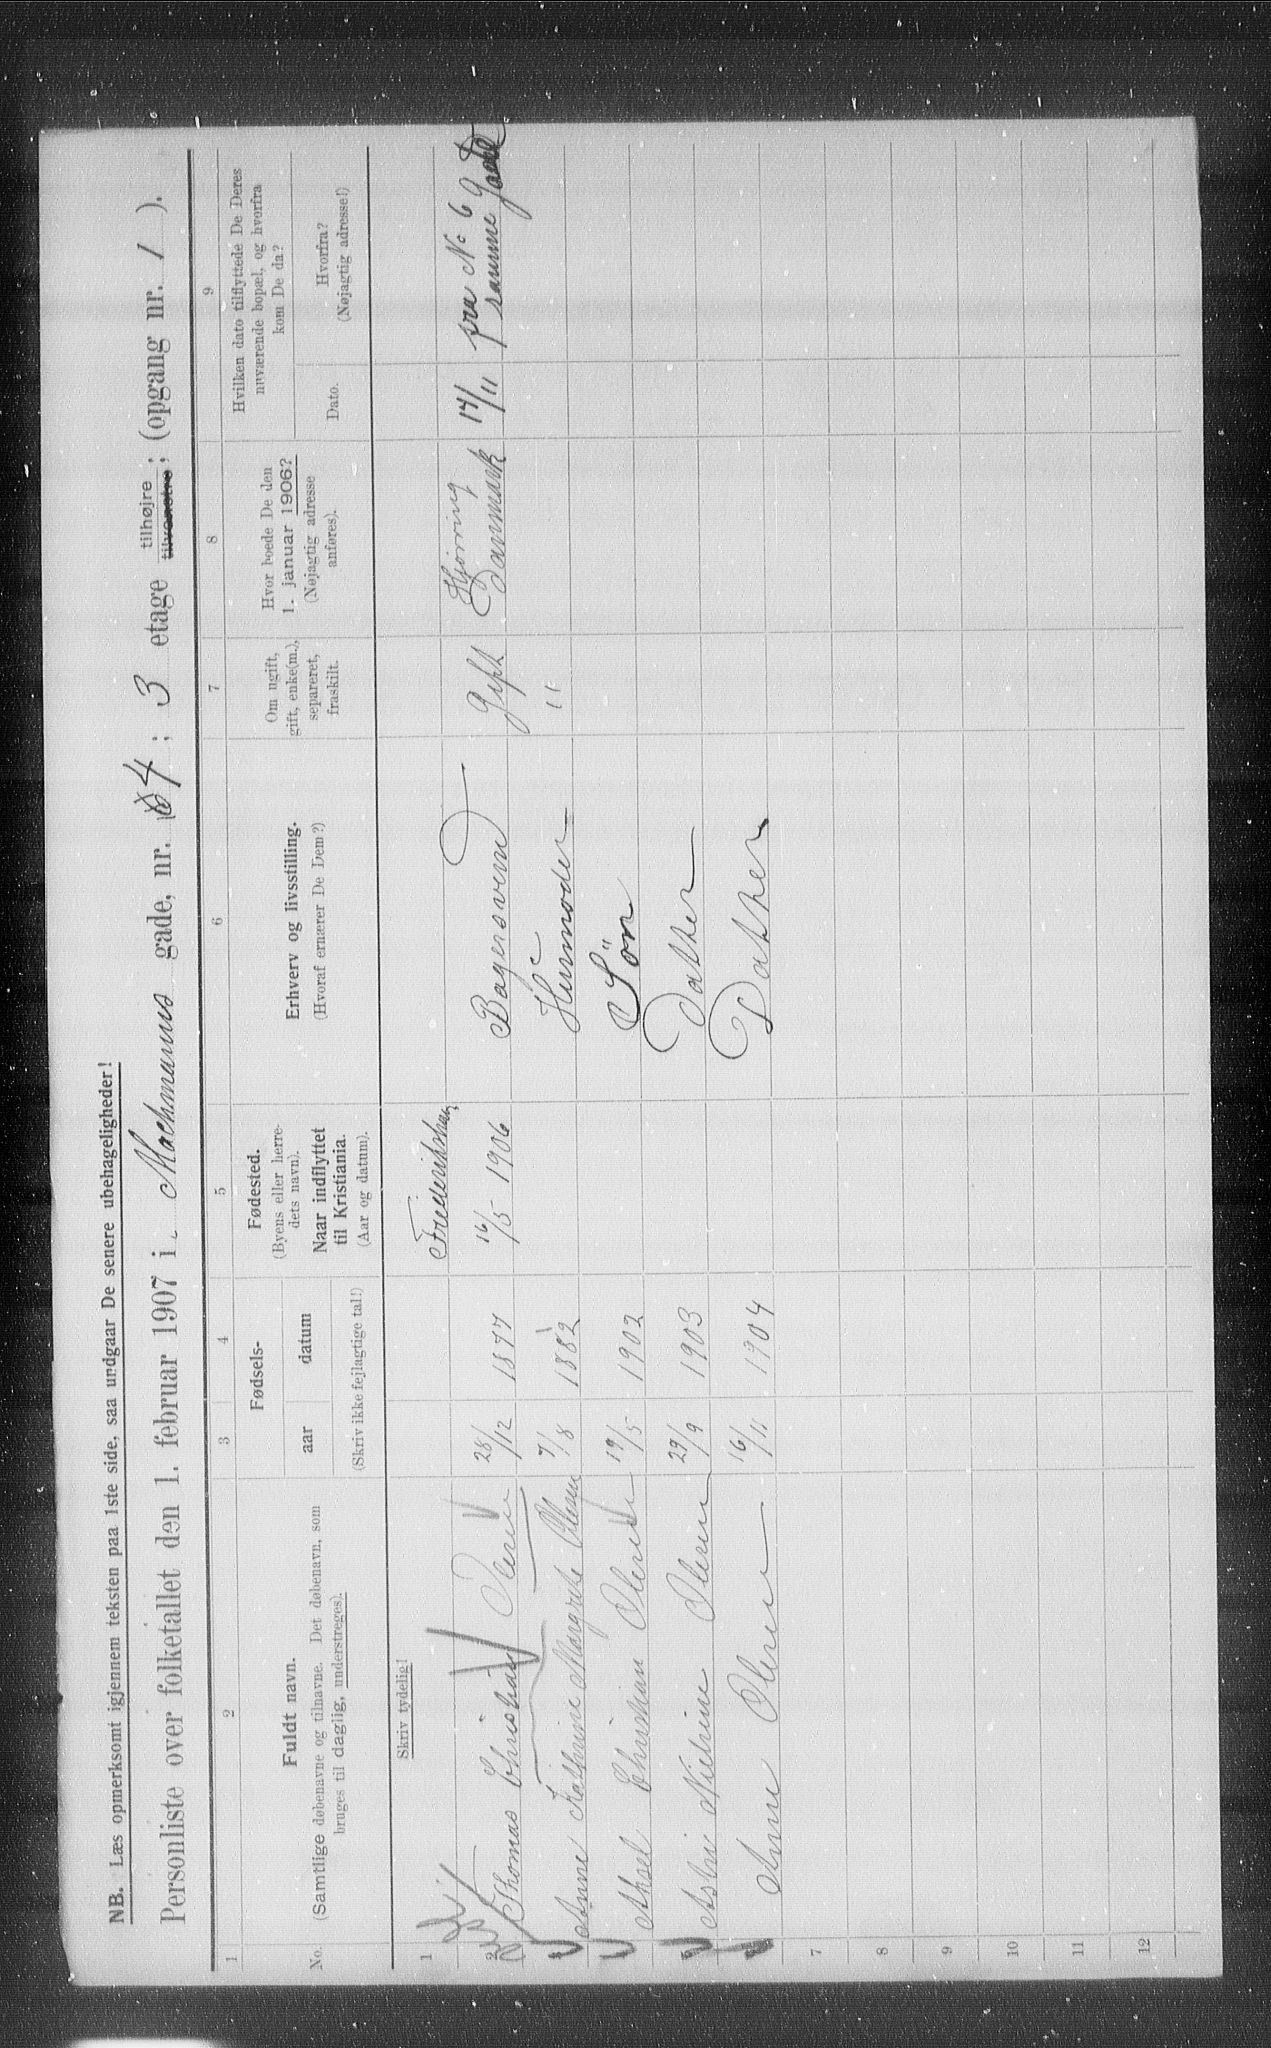 NB. Læs opmerksomt igjennem teksten paa 1ste side, saa undgaar De senere ubehageligheder!
Personliste over folketallet den 1. februar 1907 i Machmanns gade, nr. 4; 3 etage tilhøjre tilvenstre; (opgang nr. 1 ).
1 2 3 4 5 6 7 8 9
No.
Fuldt navn.
(Samtlige døbenavne og tilnavne. Det døbenavn, som
bruges til daglig, understreges).
Fødsels-
aar datum
(Skriv ikke fejlagtige tal!)
Fødested.
(Byens eller herre-
dets navn).
Naar indflyttet
til Kristiania.
(Aar og datum).
Erhverv og livsstilling.
(Hvoraf ernærer De Dem?)
Om ugift,
gift, enke(m.),
separeret,
fraskilt.
Hvor boede De den
1. januar 1906?
(Nøjagtig adresse
anføres).
Hvilken dato tilflyttede De Deres
nuværende bopæl, og hvorfra
kom De da?
Dato.
Hvorfra?
(Nøjagtig adresse!)
Skriv tydelig!
1 Frederikshavn Hjørring fra No 6
2 Thomas Christian Olsen 28/12 1877 16/5 1906 Bagersvend Gift Danmark 14/11 samme Gade
Anne Kathrine Margrethe Olsen 7/8 1882 Husmoder "
Aksel Christian Olsen 19/5 1902 Søn
Astri Nielsine Olsen 29/9 1903 Datter
Anne Olsen 16/11 1904 Datter
7
8
9
10
11
12